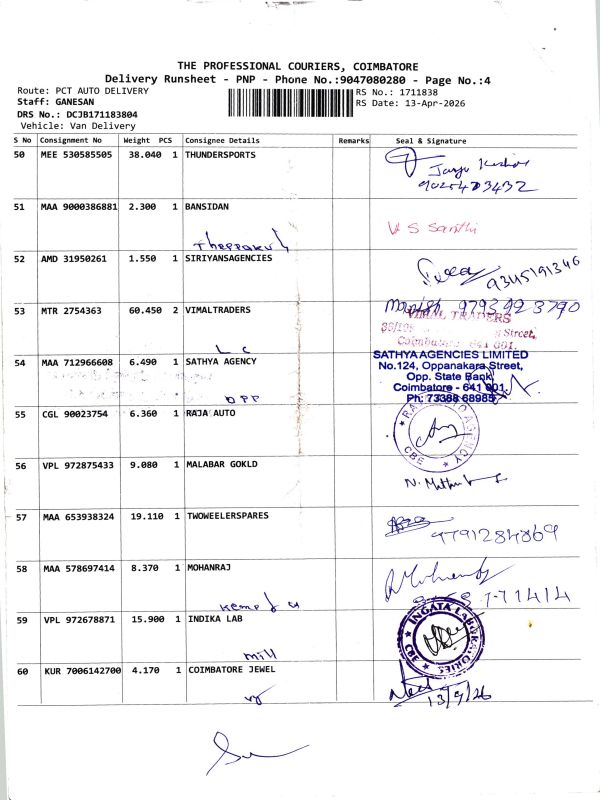 THE PROFESSIONAL COURIERS, COIMBATORE
Delivery Runsheet - PNP - Phone No.:9047080280 - Page No.:4
Route: PCT AUTO DELIVERY
RS No.: 1711838
Staff: GANESAN
RS Date: 13-Apr-2026
DRS No.: DCJB171183804
Vehicle: Van Delivery
S No Consignment No Weight PCS Consignee Details Remarks Seal & Signature
50 MEE 530585505 38.040 1 THUNDERSPORTS
9025473432
51 MAA 9000386881 2.300 1 BANSIDAN
V S Santhi
Theppakul
52 AMD 31950261 1.550 1 SIRIYANSAGENCIES
9345191346
53 MTR 2754363 60.450 2 VIMALTRADERS
Manish 9793923790
VIMAL TRADERS
Street,
Coimbatore 641 001.
L C
54 MAA 712966608 6.490 1 SATHYA AGENCY
SATHYA AGENCIES LIMITED
No.124, Oppanakara Street,
Opp. State Bank
Coimbatore - 641 001.
Ph: 73388 68985
OPP
55 CGL 90023754 6.360 1 RAJA AUTO
AGENCY
CBE
56 VPL 972875433 9.080 1 MALABAR GOKLD
57 MAA 653938324 19.110 1 TWOWEELERSPARES
9791284869
58 MAA 578697414 8.370 1 MOHANRAJ
59 VPL 972678871 15.900 1 INDIKA LAB
INGATA LABORATORIES
CBE
mill
60 KUR 7006142700 4.170 1 COIMBATORE JEWEL